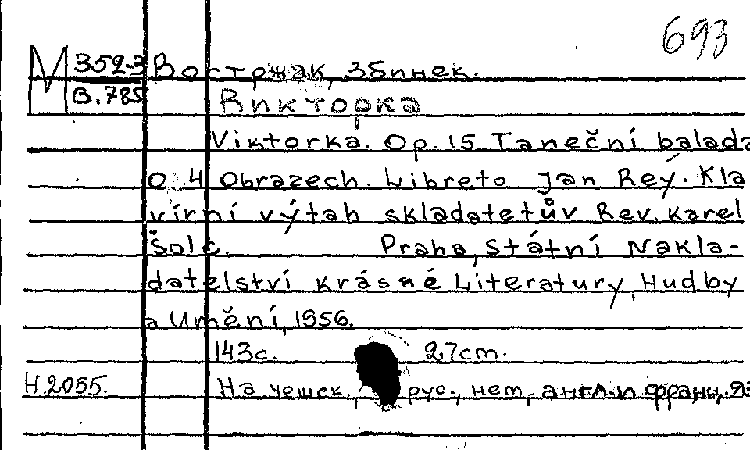 693
М 352-3 Востржак, Збинек.
В.785 Викторка
Viktorka. Op. 15. Taneční balada
o 4 obrazech. Libreto Jan Rey. Kla
vírní výtah skladatetův Rev. Karel
Šolc. Praha, Státní Nakla-
datelství krásné Literatury, Hudby
a Umění, 1956.
143с. 27cm.
Н.2055. На чешск., рус., нем, англ. и франц. яз